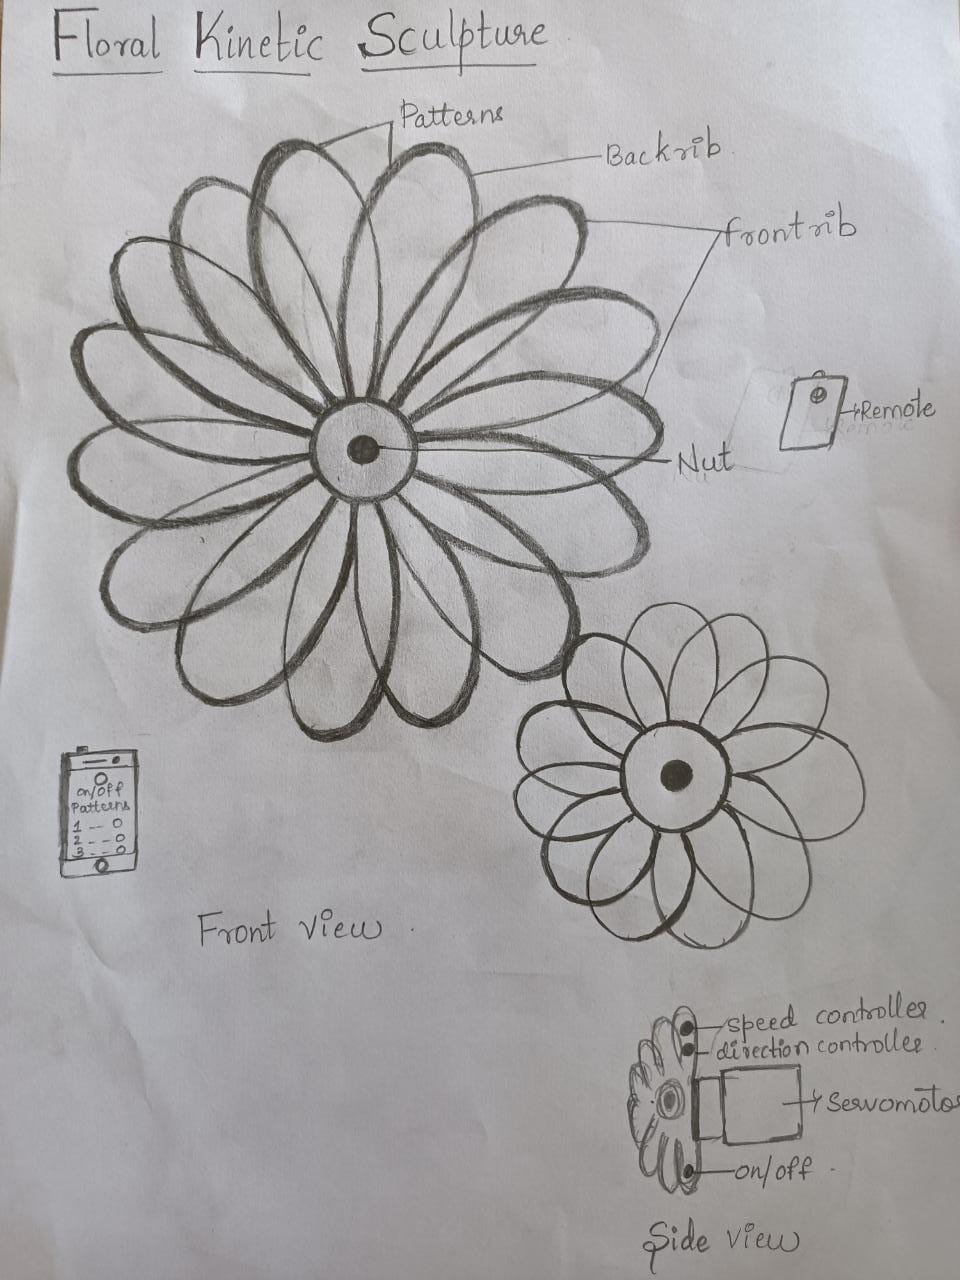 Floral Kinetic Sculpture
Patterns
Backrib
frontrib
Remote
Nut
on/off
Patterns
1 -- O
2 --- O
3 -- O
Front view
speed controller
direction controller
Servomotor
on/off
Side view